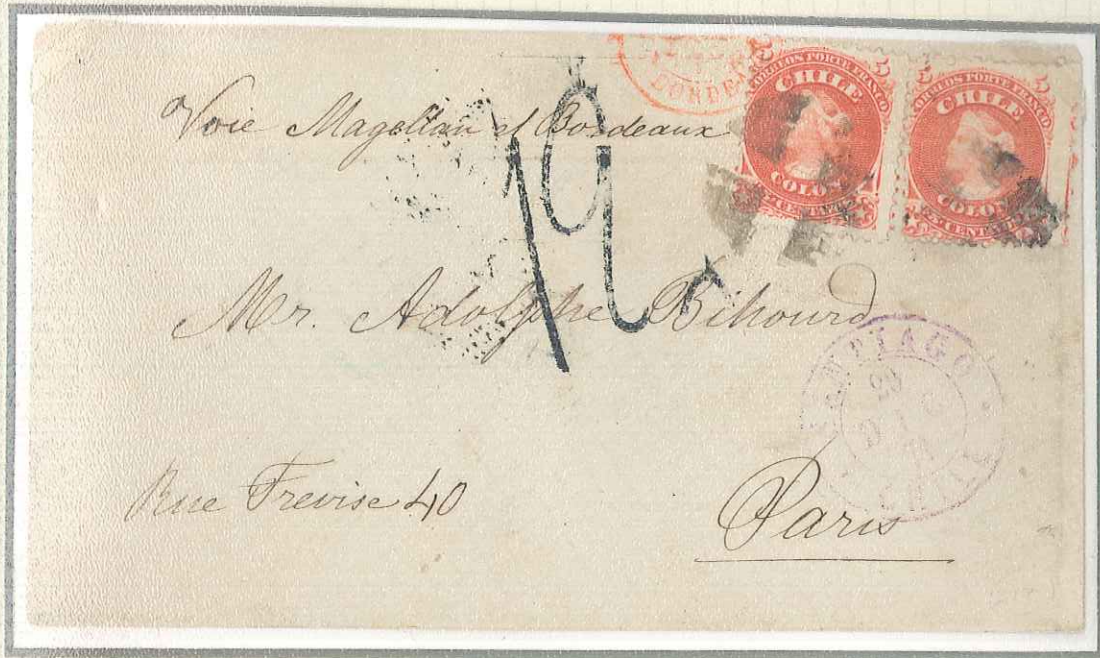 BORDE
5 5
CORREOS PORTE FRANCO
CHILE
COLON
CENTAVOS
5 5
CORREOS PORTE FRANCO
CHILE
COLON
5 CENTAVOS
Voie Magellan et Bordeaux
Mr. Adolphe Bihourd
SANTIAGO
29
CHILE
Rue Trevise 40
Paris